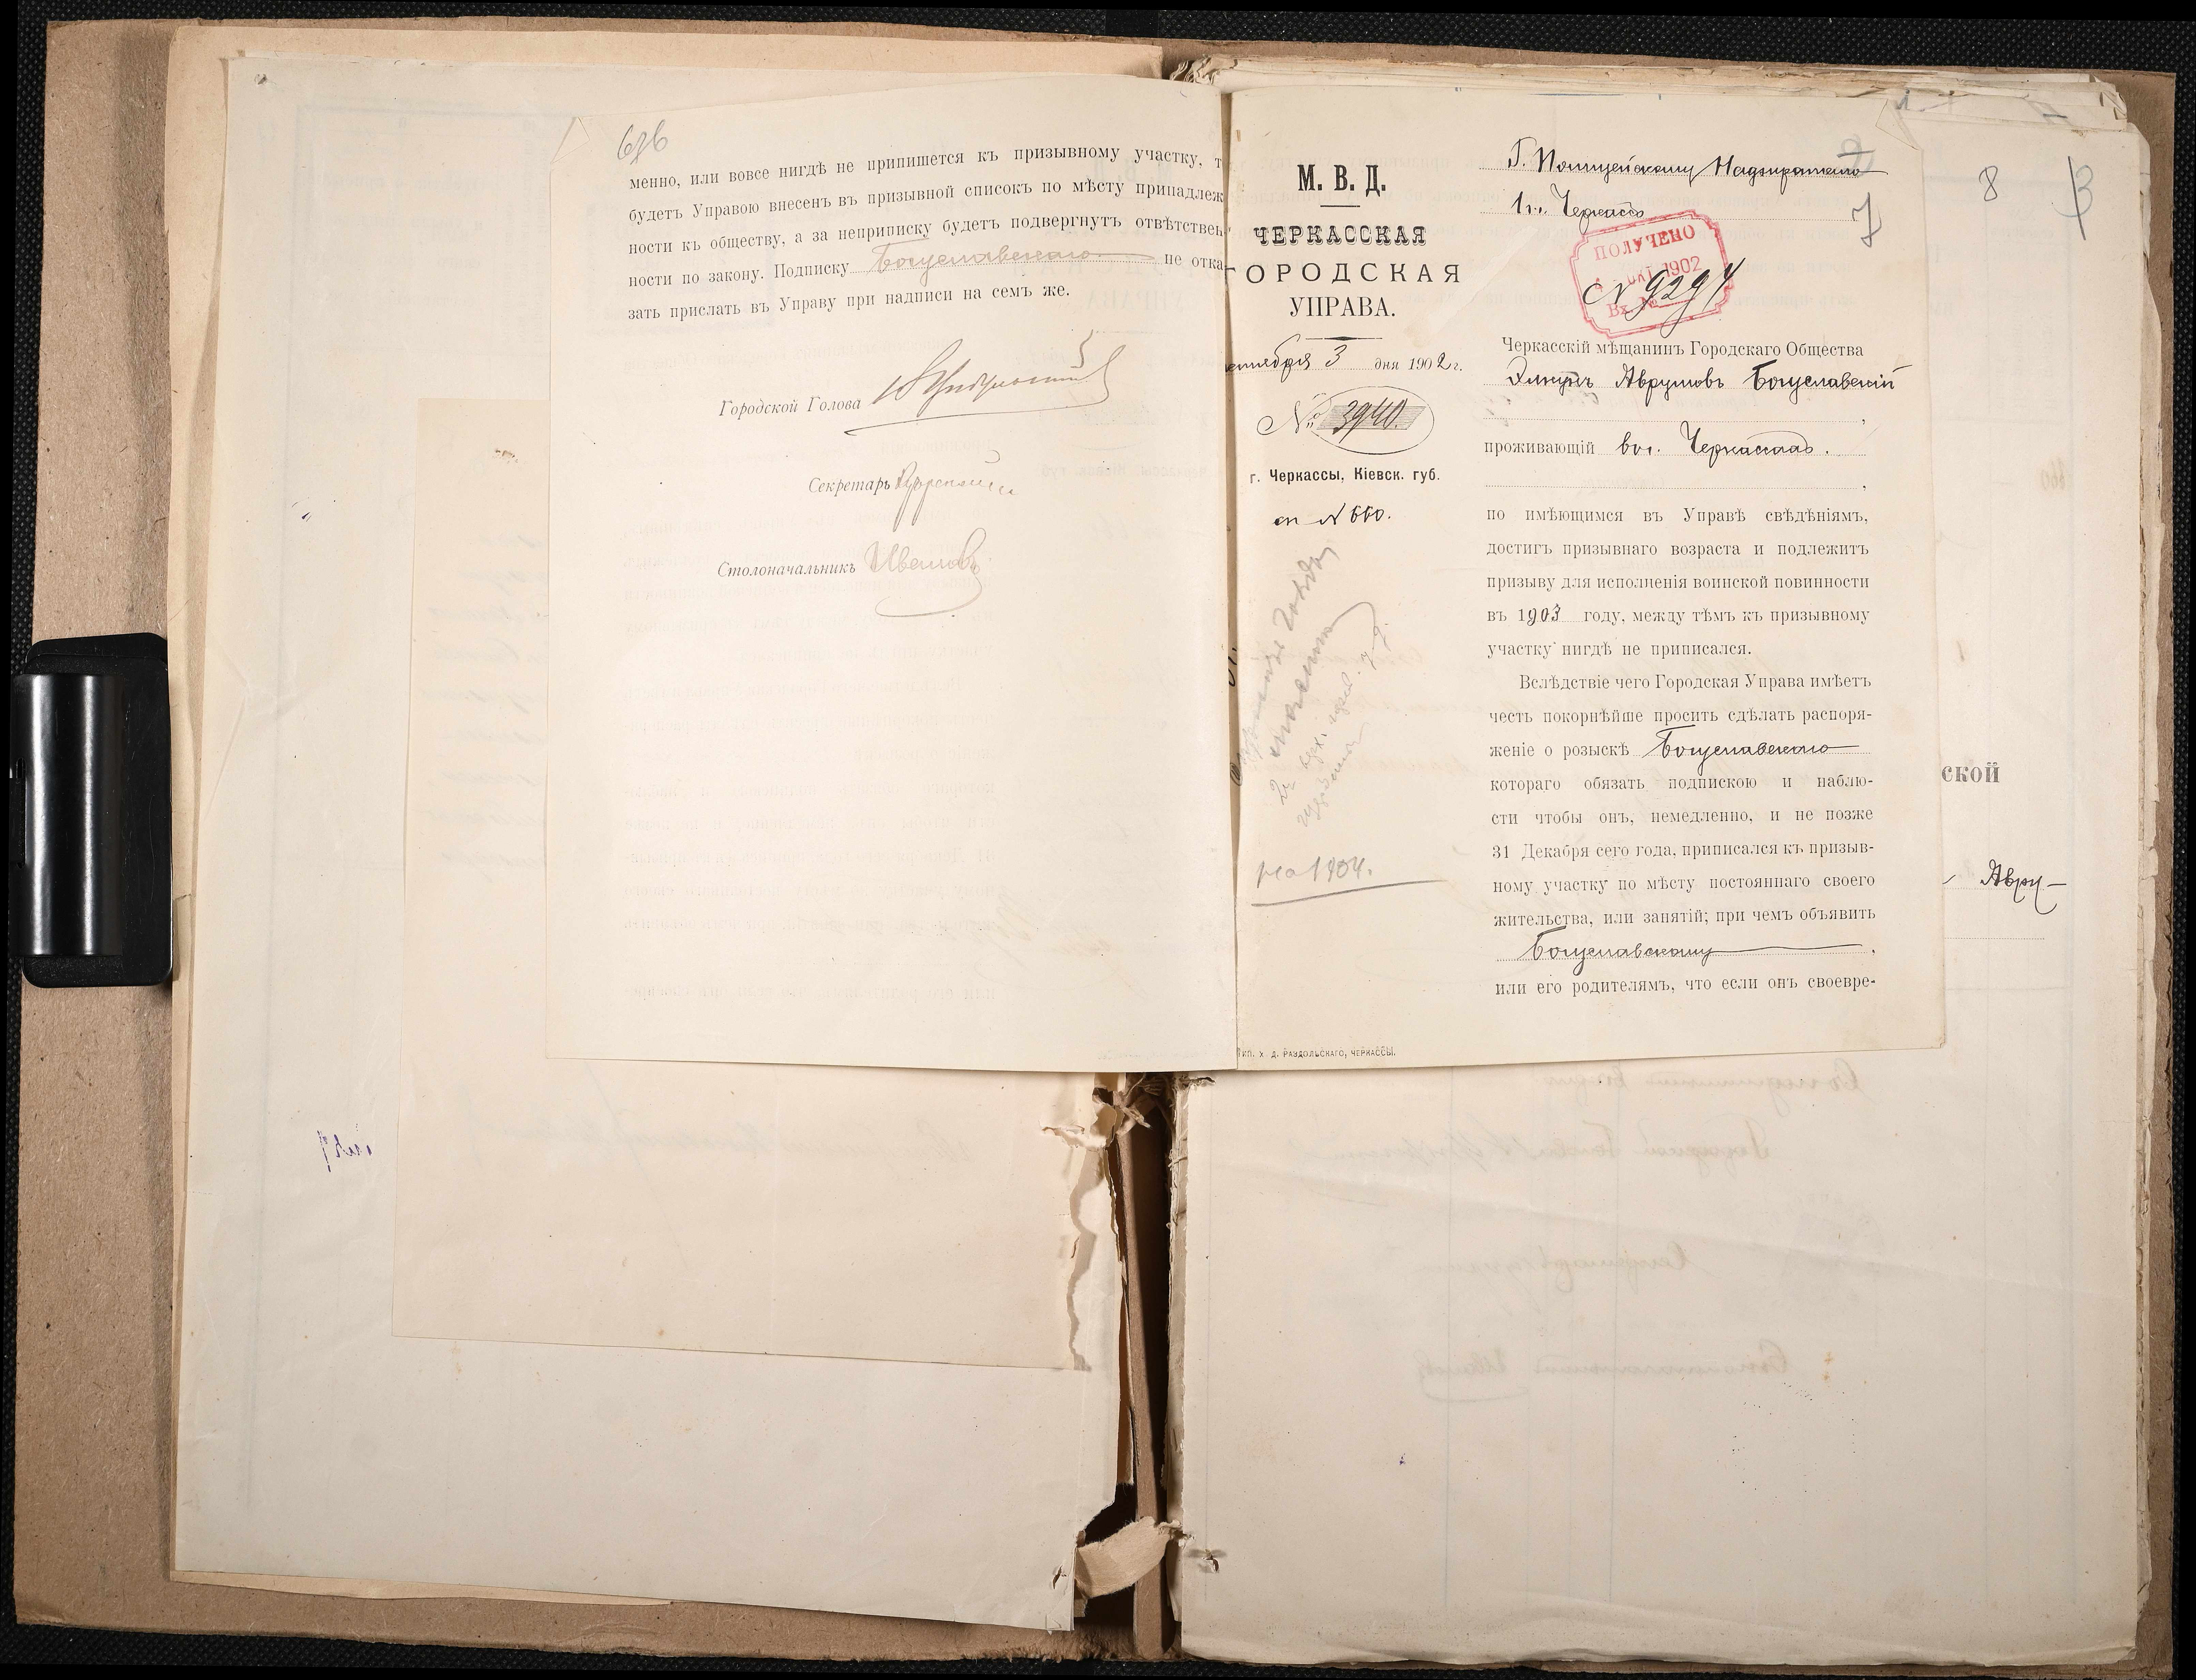 менно, или вовсе нигдѣ не припишется къ призывному участку, т
будетъ Управою внесенъ въ призывной списокъ по мѣсту принадлеж
ности къ обществу, а за неприписку будетъ подвергнутъ отвѣтствен
ности по закону. Подписку Богуславскаго не отка
зать прислать въ Управу при надписи на семъ же.
Городской Голова
Секретарь
Столоначальникъ Ивановъ
М. В. Д.
ЧЕРКАССКАЯ
ГОРОДСКАЯ
УПРАВА.
3 дня 1902 г.
№ 3940.
г. Черкассы, Кіевск. губ.
№ 660.
на 1904.
Тип. Х. Д. РАЗДОЛЬСКАГО, ЧЕРКАССЫ.
Г. Полицейскому Надзирателю
г. Черкассъ
7
ПОЛУЧЕНО
ОКТ 1902
Вх. №
№ 9294
Черкасскій мѣщанинъ Городскаго Общества
Элкунъ Аврумовъ Богуславскій
проживающій въ г. Черкассахъ.
по имѣющимся въ Управѣ свѣдѣніямъ,
достигъ призывнаго возраста и подлежитъ
призыву для исполненія воинской повинности
въ 1903 году, между тѣмъ къ призывному
участку нигдѣ не приписался.
Вслѣдствіе чего Городская Управа имѣетъ
честь покорнѣйше просить сдѣлать распоря-
женіе о розыскѣ Богуславскаго
котораго обязать подпискою и наблю-
сти чтобы онъ, немедленно, и не позже
31 Декабря сего года, приписался къ призыв-
ному участку по мѣсту постояннаго своего
жительства, или занятій; при чемъ объявить
Богуславскому
или его родителямъ, что если онъ своевре-
8
ской
Авру-